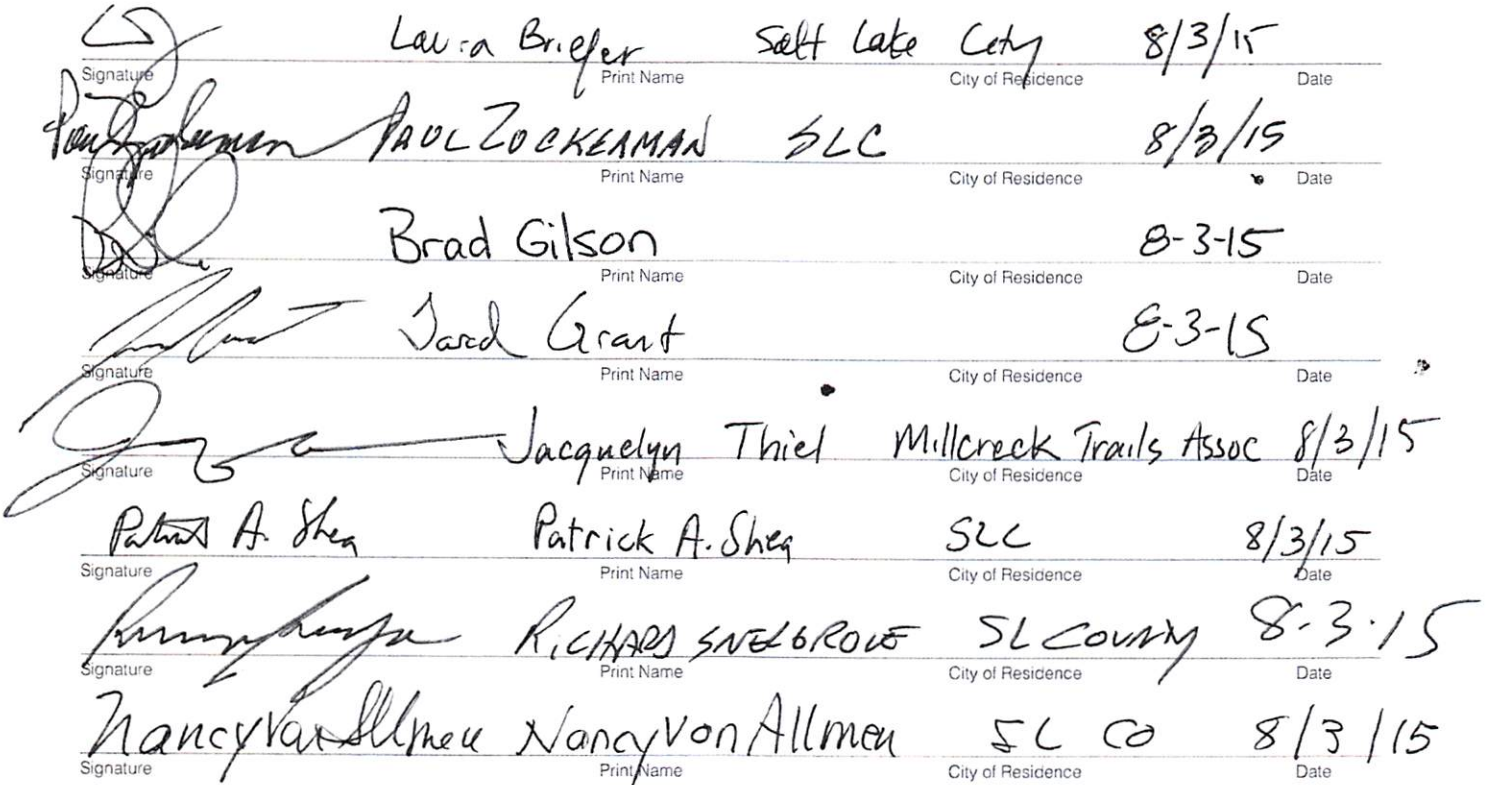 Laura Briefer Salt Lake City 8/3/15
Signature Print Name City of Residence Date
PAUL ZUCKERMAN SLC 8/3/15
Signature Print Name City of Residence Date
Brad Gilson 8-3-15
Signature Print Name City of Residence Date
Jared Grant 8-3-15
Signature Print Name City of Residence Date
Jacquelyn Thiel Millcreek Trails Assoc 8/3/15
Signature Print Name City of Residence Date
Patrick A. Shea Patrick A. Shea SLC 8/3/15
Signature Print Name City of Residence Date
RICHARD SNELGROVE SL COUNTY 8-3-15
Signature Print Name City of Residence Date
Nancy Von Allmen Nancy Von Allmen SL CO 8/3/15
Signature Print Name City of Residence Date